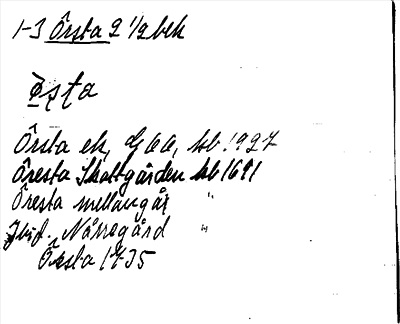 1-3 Örsta 2 1/2 bek
Örsta ek, GEA, kb 1927
Öresta Skattgården kb 1691
Öresta mellangår "
Ibid. Norregård "
Örsta 1735